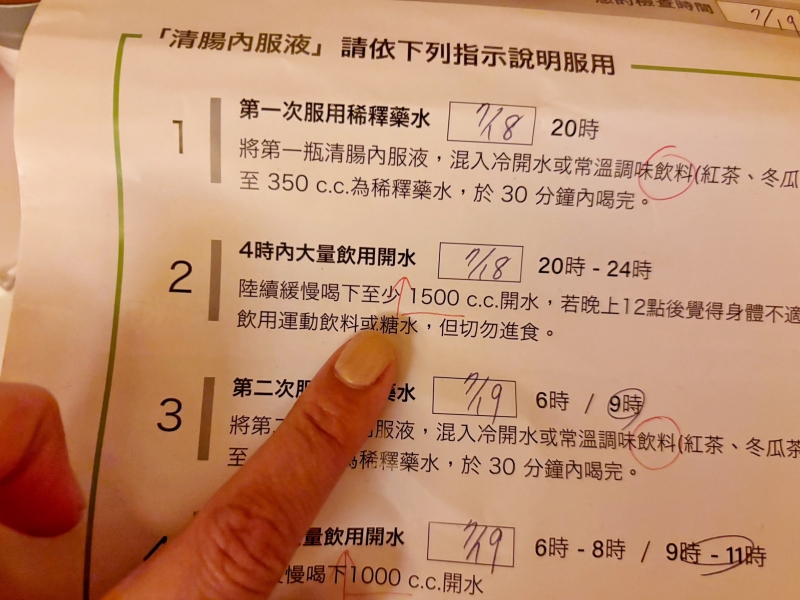 您的檢查時間 7/19
「清腸內服液」請依下列指示說明服用
1 第一次服用稀釋藥水 7/18 20時
將第一瓶清腸內服液，混入冷開水或常溫調味飲料(紅茶、冬瓜
至 350 c.c.為稀釋藥水，於 30 分鐘內喝完。
2 4時內大量飲用開水 7/18 20時 - 24時
陸續緩慢喝下至少 1500 c.c.開水，若晚上12點後覺得身體不適
飲用運動飲料或糖水，但切勿進食。
3 第二次服 藥水 7/19 6時 / 9時
將第二 內服液，混入冷開水或常溫調味飲料(紅茶、冬瓜茶
至 為稀釋藥水，於 30 分鐘內喝完。
量飲用開水 7/19 6時 - 8時 / 9時 - 11時
慢喝下1000 c.c.開水